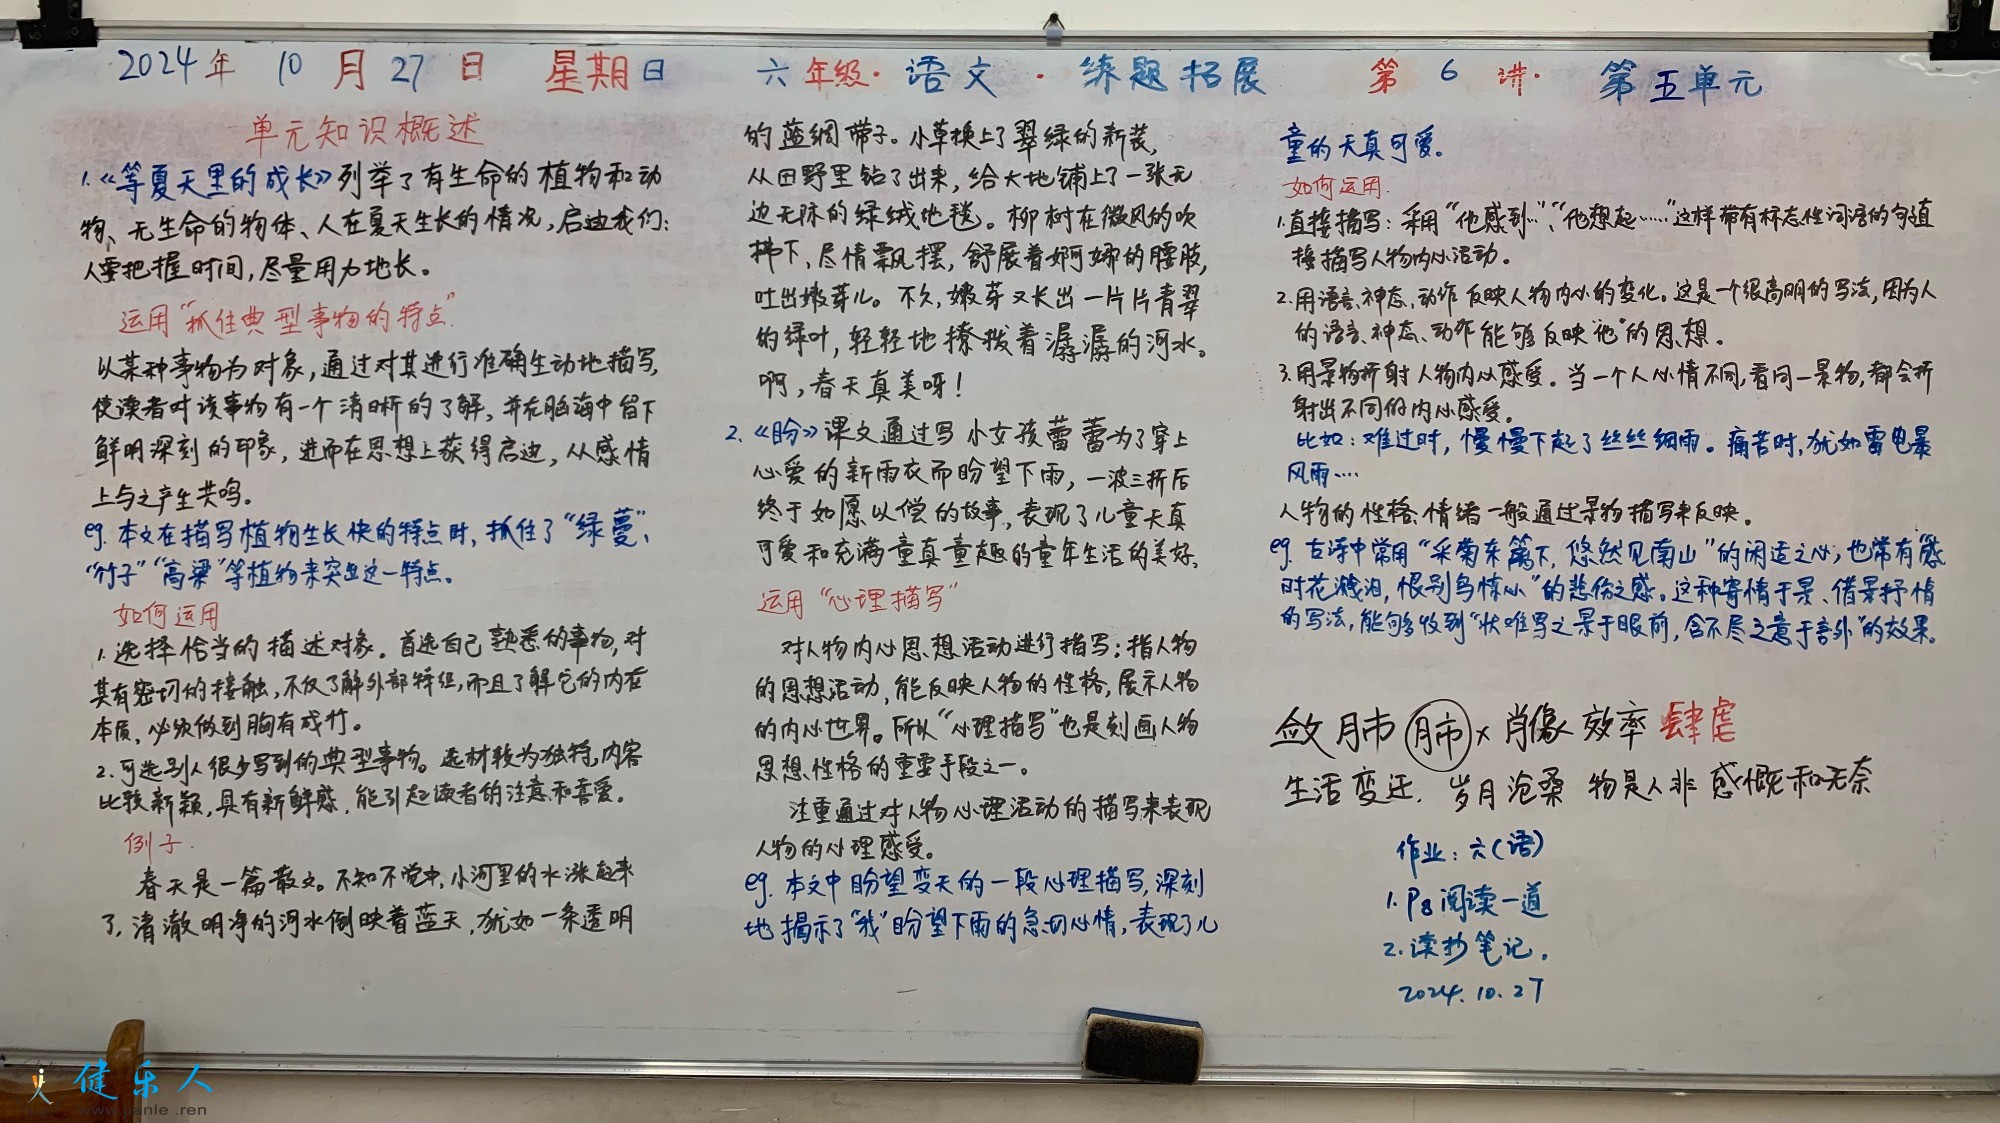 2024年 10月27日 星期日 六年级·语文·练题拓展 第6讲·第五单元
单元知识概述
1.《等夏天里的成长》列举了有生命的植物和动
物、无生命的物体、人在夏天生长的情况，启迪我们：
人要把握时间，尽量用力地长。
运用“抓住典型事物的特点”
以某种事物为对象，通过对其进行准确生动地描写，
使读者对该事物有一个清晰的了解，并在脑海中留下
鲜明深刻的印象，进而在思想上获得启迪，从感情
上与之产生共鸣。
eg. 本文在描写植物生长快的特点时，抓住了“绿蔓”、
“竹子”“高粱”等植物来突出这一特点。
如何运用
1. 选择恰当的描述对象。首选自己熟悉的事物，对
其有密切的接触，不仅了解外部特征，而且了解它的内在
本质，必须做到胸有成竹。
2. 可选别人很少写到的典型事物。选材较为独特，内容
比较新颖，具有新鲜感，能引起读者的注意和喜爱。
例子.
春天是一篇散文。不知不觉中，小河里的水涨起来
了，清澈明净的河水倒映着蓝天，犹如一条透明
的蓝绸带子。小草换上了翠绿的新装，
从田野里钻了出来，给大地铺上了一张无
边无际的绿绒地毯。柳树在微风的吹
拂下，尽情飘摆，舒展着婀娜的腰肢，
吐出嫩芽儿。不久，嫩芽又长出一片片青翠
的绿叶，轻轻地撩拨着潺潺的河水。
啊，春天真美呀！
2.《盼》课文通过写小女孩蕾蕾为了穿上
心爱的新雨衣而盼望下雨，一波三折后
终于如愿以偿的故事，表现了儿童天真
可爱和充满童真童趣的童年生活的美好。
运用“心理描写”
对人物内心思想活动进行描写；指人物
的思想活动，能反映人物的性格，展示人物
的内心世界。所以“心理描写”也是刻画人物
思想性格的重要手段之一。
注重通过对人物心理活动的描写来表现
人物的心理感受。
eg. 本文中盼望变天的一段心理描写，深刻
地揭示了“我”盼望下雨的急切心情，表现了儿
童的天真可爱。
如何运用.
1.直接描写：采用“他感到…”、“他想起……”这样带有标志性词语的句直
接描写人物内心活动。
2.用语言、神态、动作反映人物内心的变化。这是一个很高明的写法，因为人
的语言、神态、动作能够反映“他”的思想。
3.用景物折射人物内心感受。当一个人心情不同，看同一景物，都会折
射出不同的内心感受。
比如：难过时，慢慢下起了丝丝细雨。痛苦时，犹如雷电暴
风雨····
人物的性格、情绪一般通过景物描写来反映。
eg. 古诗中常用“采菊东篱下，悠然见南山”的闲适之心，也常有“感
时花溅泪，恨别鸟惊心”的悲伤之感。这种寄情于景、借景抒情
的写法，能够收到“状难写之景于眼前，含不尽之意于言外”的效果。
敛 肺 肺 × 肖像 效率 肆虐
生活变迁. 岁月沧桑 物是人非 感慨和无奈
作业：六(语)
1. P8 阅读一道
2. 读抄笔记.
2024.10.27
健乐人
www.jianle.ren